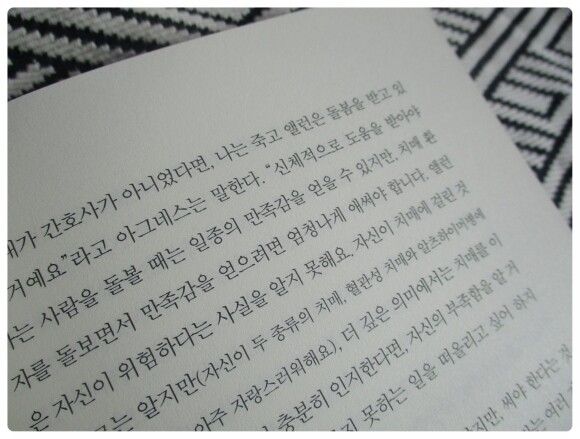 내가 간호사가 아니었다면, 나는 죽고 앨런은 돌봄을 받고 있
거예요”라고 아그네스는 말한다. “신체적으로 도움을 받아야
는 사람을 돌볼 때는 일종의 만족감을 얻을 수 있지만, 치매 환
자를 돌보면서 만족감을 얻으려면 엄청나게 애써야 합니다. 앨런
은 자신이 위험하다는 사실을 알지 못해요. 자신이 치매에 걸린 것
는 알지만(자신이 두 종류의 치매, 혈관성 치매와 알츠하이머병에
아주 자랑스러워해요), 더 깊은 의미에서는 치매를 이
충분히 인지한다면, 자신의 부족함을 알 거
지 못하는 일을 떠올리고 싶어 하지
지만, 써야 한다는 것
는 여러